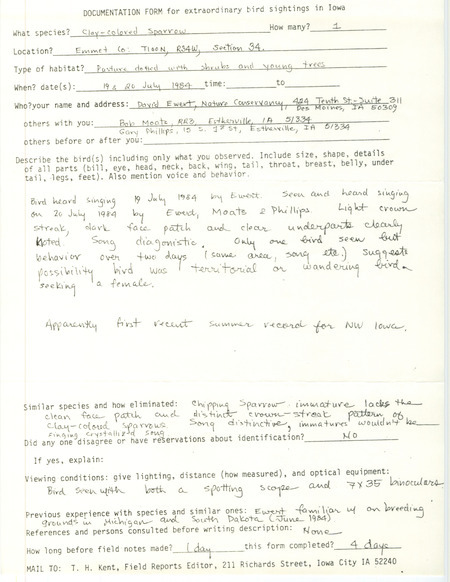 DOCUMENTATION FORM for extraordinary bird sightings in Iowa
What species? Clay-colored Sparrow How many? 1
Location? Emmet Co: T100N, R34W, Section 34.
Type of habitat? Pasture dotted with shrubs and young trees
When? date(s): 19 & 20 July 1984 time: to
Who?your name and address: David Ewert, Nature Conservancy, 424 Tenth St.-Suite 311
Des Moines, IA 50309
others with you: Bob Moats RR3, Estherville, IA 51334
Gary Phillips, 15 S. 1st St, Estherville, IA 51334
others before or after you:
Describe the bird(s) including only what you observed. Include size, shape, details
of all parts (bill, eye, head, neck, back, wing, tail, throat, breast, belly, under
tail, legs, feet). Also mention voice and behavior.
Bird heard singing 19 July 1984 by Ewert. Seen and heard singing
on 20 July 1984 by Ewert, Moats & Phillips. Light crown
streak, dark face patch and clear underparts clearly
noted. Song diagnostic. Only one bird seen but
behavior over two days (same area, song etc.) suggests
possibility bird was territorial or wandering bird
seeking a female.
Apparently first recent summer record for NW Iowa.
Similar species and how eliminated: Chipping Sparrow immature lacks the
clean face patch and distinct crown-streak pattern of
Clay-colored sparrows. Song distinctive, immatures wouldn't be
singing crystallized song
Did any one disagree or have reservations about identification? No
If yes, explain:
Viewing conditions: give lighting, distance (how measured), and optical equipment:
Bird seen with both a spotting scope and 7x35 binoculars
Previous experience with species and similar ones: Ewert familiar w/ on breeding
grounds in Michigan and South Dakota (June 1984)
References and persons consulted before writing description: None
How long before field notes made? 1 day this form completed? 4 days
MAIL TO: T. H. Kent, Field Reports Editor, 211 Richards Street, Iowa City IA 52240